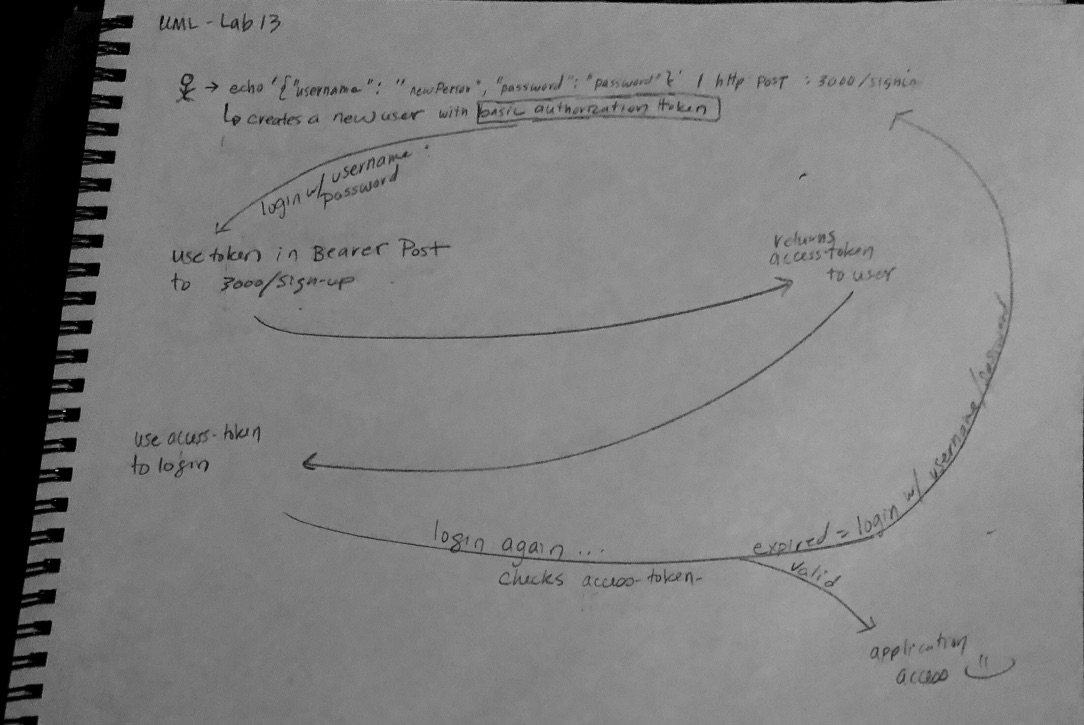 UML - Lab 13
→ echo '{"username": "newPerson", "password": "password"}' | http post :3000/signin
↳ creates a new user with basic authorization token
login w/ username
password
use token in Bearer Post
to 3000/sign-up
returns
access-token
to user
use access-token
to login
login again ...
checks access-token-
expired = login w/ username/password
valid
application
access